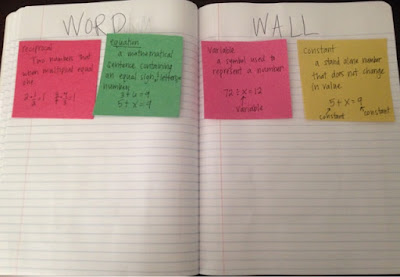 WORD WALL
Reciprocal
Two numbers that
when multiplied equal
one.
Equation
a mathematical
sentence containing
an equal sign, sentence
number
3+6=9
5+x=9
Variable
a symbol used to
represent a number
72÷x=12
variable
Constant
a stand alone number
that does not change
in value
5+x=9
constant
constant